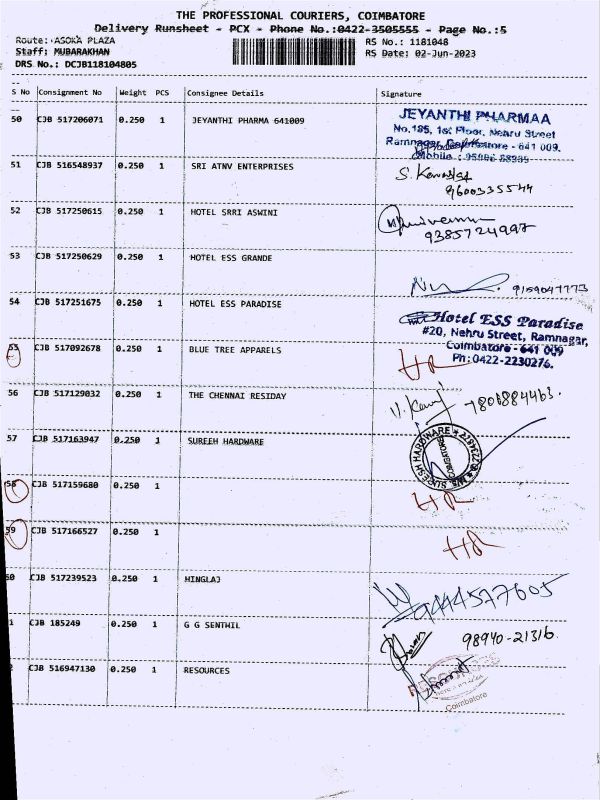 THE PROFESSIONAL COURIERS, COIMBATORE
Delivery Runsheet - PCX - Phone No.:0422-3505555 - Page No.:5
Route: ASOKA PLAZA RS No.: 1181048
Staff: MUBARAKHAN RS Date: 02-Jun-2023
DRS No.: DCJB118104805
S No Consignment No Weight PCS Consignee Details Signature
50 CJB 517206071 0.250 1 JEYANTHI PHARMA 641009
JEYANTHI PHARMAA
No.185, 1st Floor, Nehru Street
Ramnagar, Coimbatore - 641 009.
Mobile :
51 CJB 516548937 0.250 1 SRI ATNV ENTERPRISES
9600335544
52 CJB 517250615 0.250 1 HOTEL SRRI ASWINI
9385724997
53 CJB 517250629 0.250 1 HOTEL ESS GRANDE
9159047773
54 CJB 517251675 0.250 1 HOTEL ESS PARADISE
Hotel ESS Paradise
#20, Nehru Street, Ramnagar,
Coimbatore - 641 009
Ph:0422-2230276.
55 CJB 517092678 0.250 1 BLUE TREE APPARELS
HR
56 CJB 517129032 0.250 1 THE CHENNAI RESIDAY
7806884463.
57 CJB 517163947 0.250 1 SUREEH HARDWARE
SURESH HARDWARE
COIMBATORE
58 CJB 517159680 0.250 1
HR
59 CJB 517166527 0.250 1
HR
60 CJB 517239523 0.250 1 HINGLAJ
9444577605
1 CJB 185249 0.250 1 G G SENTHIL
98940-21316.
CJB 516947130 0.250 1 RESOURCES
Coimbatore